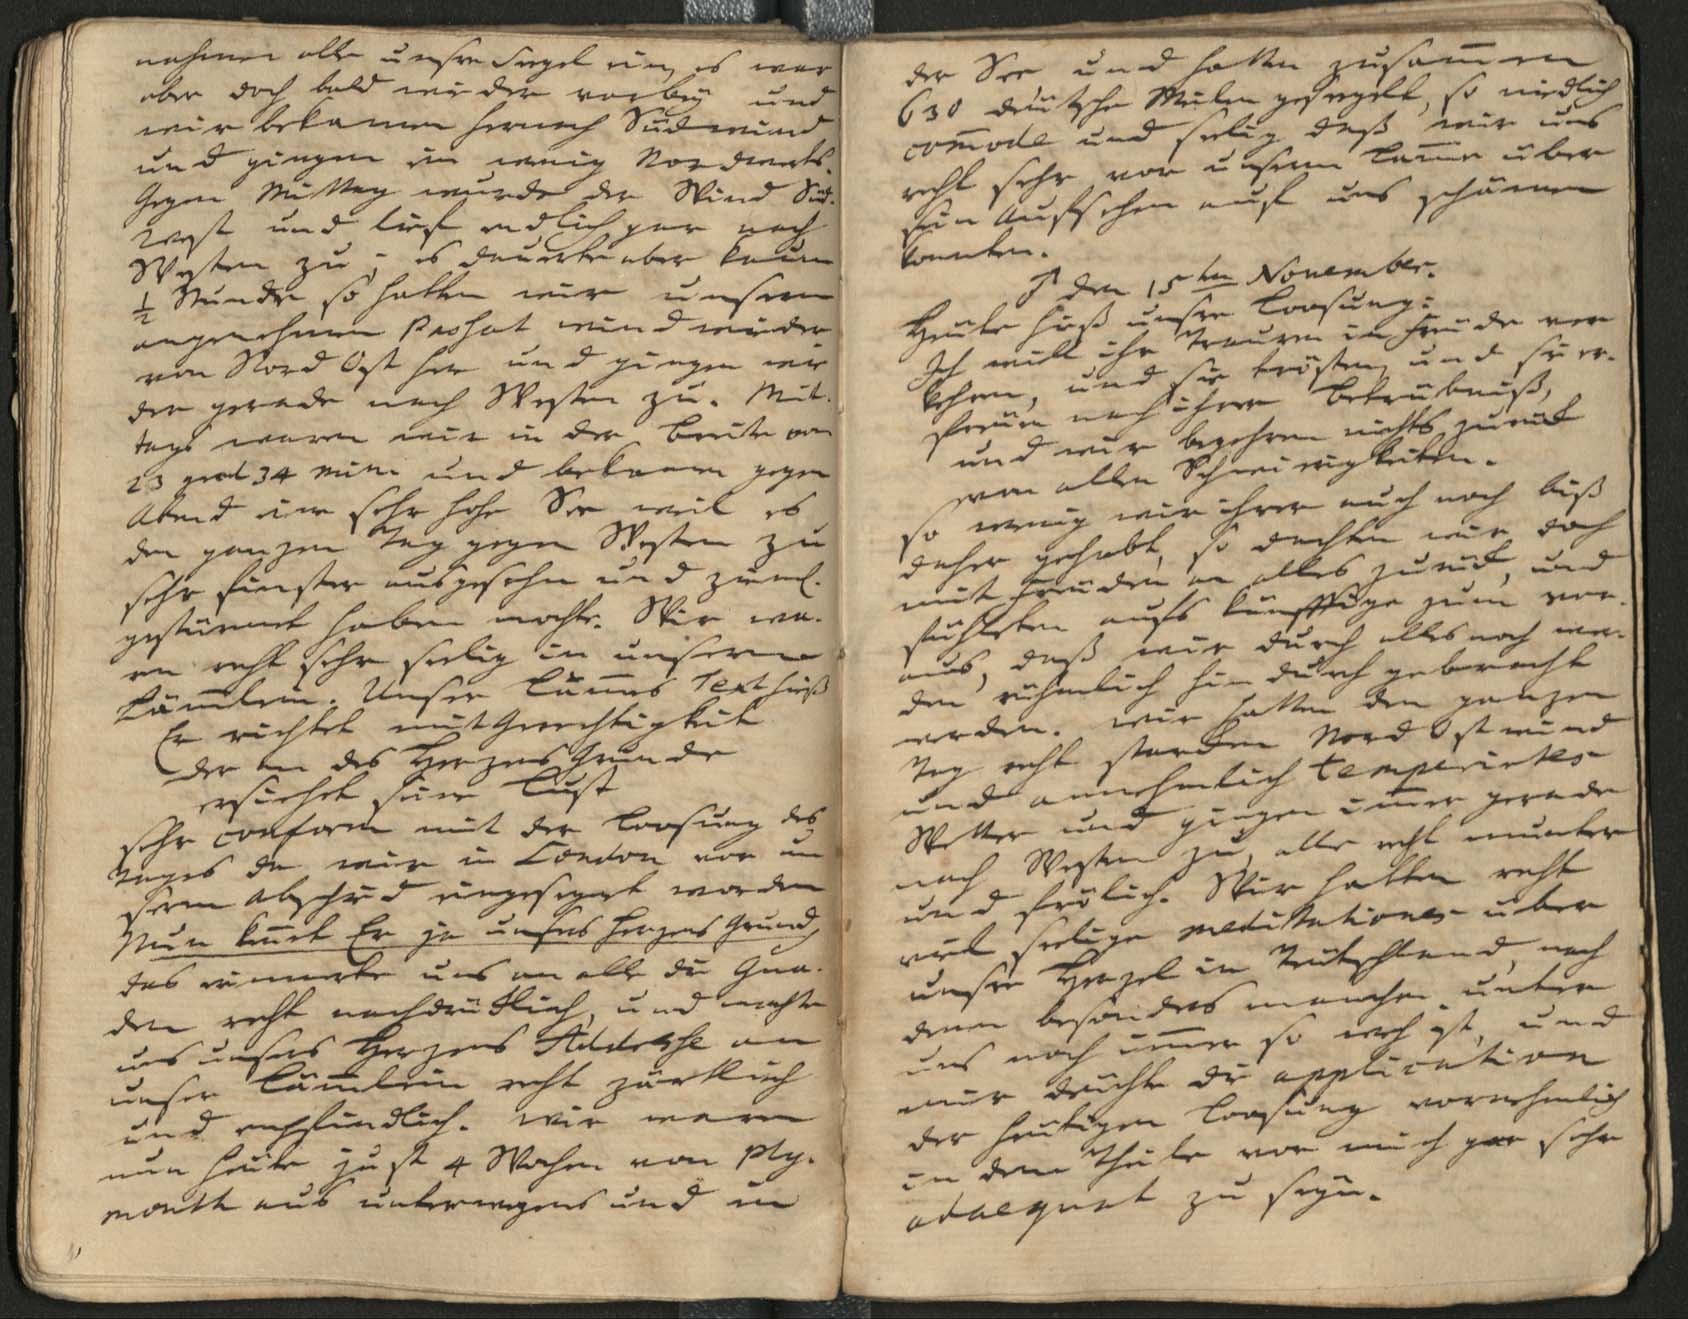 nahmen alle unsre Segel ein, es war
aber doch bald wieder vorbeÿ und
wir bekamen hernach Südwind
und giengen ein wenig Nordwerts.
Gegen Mittag wurde der Wind Süd-
west und lief endlich gar nach
Westen zu; es dauerte aber kaum
½ Stunde so hatten wir unsern
angenehmen Passat wind wieder
von Nord Ost her und giengen wie
der gerade nach Westen zu. Mit-
tags waren wir in der Breite von
23 grad 34 min. und bekamen gegen
Abend eine sehr hohe See weil es
den ganzen Tag gegen Westen zu
sehr finster ausgesehn und zieml.
gestürmet haben mochte. Wir wa-
ren recht sehr seelig in unserm
Läm̄lein. Unser Lam̄s Text hieß
Er richtet mit Gerechtigkeit
der an des Herzens Grunde
ersiehet seine Lust
sehr conform mit der Loosung des
Tages da wir in London vor un
serm Abschied eingesegnet worden
Nun kennt Er ja unsers Herzens Grund,
das erinnerte uns an alle die Gna-
den recht nachdrücklich, und machte
uns unsers Herzens Addresse an
unser Läm̄lein recht zärtlich
und empfindlich. Wir waren
nun heute just 4 Wochen von Ply-
mouth aus unterwegens und in
der See und hatten zusam̄en
630 deutsche Meilen gesegelt, so niedlich
com̄ode und seelig daß wir uns
recht sehr vor unserm Lam̄e über
sein Aufsehen auf uns schämen
konnten.
♂ den 15ten November.
Heute hieß unsre Loosung:
Ich will ihr Trauren in Freude ver
kehren, und sie trösten, und sie er-
freuen nach ihrer Betrübniß,
und wir begehren nichts zurück
von allen Schwierigkeiten.
so wenig wir ihrer auch noch biß
daher gehabt, so dachten wir doch
mit Freuden an alles zurück, und
fühleten aufs künfftige zum vor-
aus, daß wir durch alles noch wer-
den rühmlich hindurch gebracht
werden. wir hatten den ganzen
Tag recht starcken Nord Ostwind
und annehmlich temperirtes
Wetter und giengen im̄er gerade
nach Westen zu, alle recht munter
und frölich. Wir hatten recht
viel seelige meditationes über
unsre Herzel in Teutschland, nach
denen besonders manchen unter
uns noch im̄er so weh ist, und
mir deuchte die application
der heutigen Loosung vornehmlich
in dem Theile vor mich gar sehr
adaequat zu seyn.